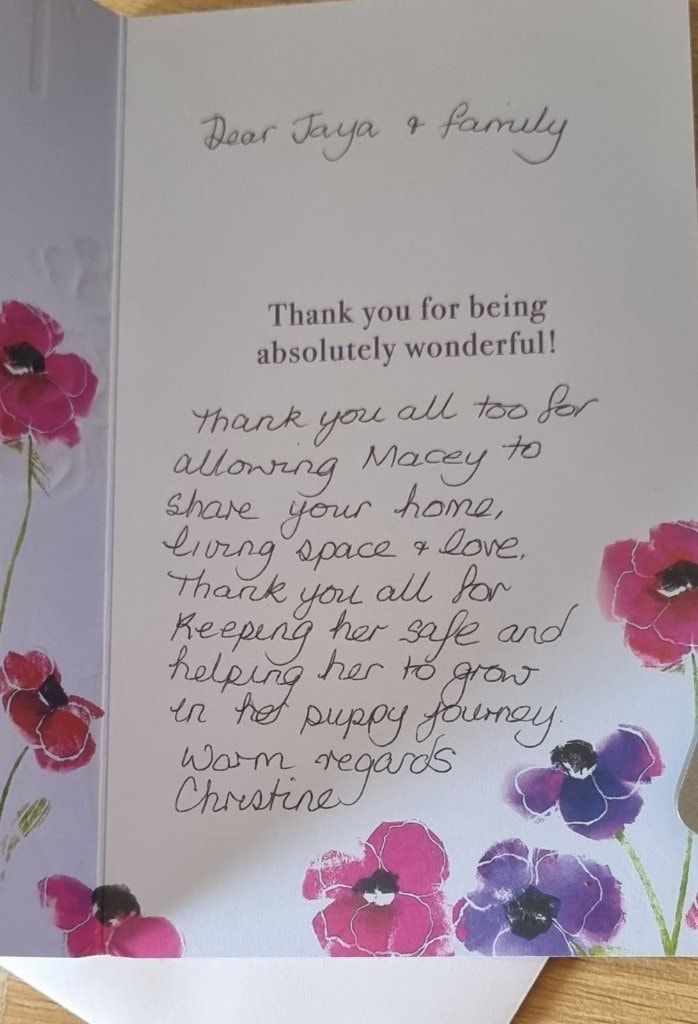 Dear Jaya & family
Thank you for being
absolutely wonderful!
Thank you all too for
allowing Macey to
share your home,
living space & love.
Thank you all for
keeping her safe and
helping her to grow
in her puppy journey.
Warm regards
Christine